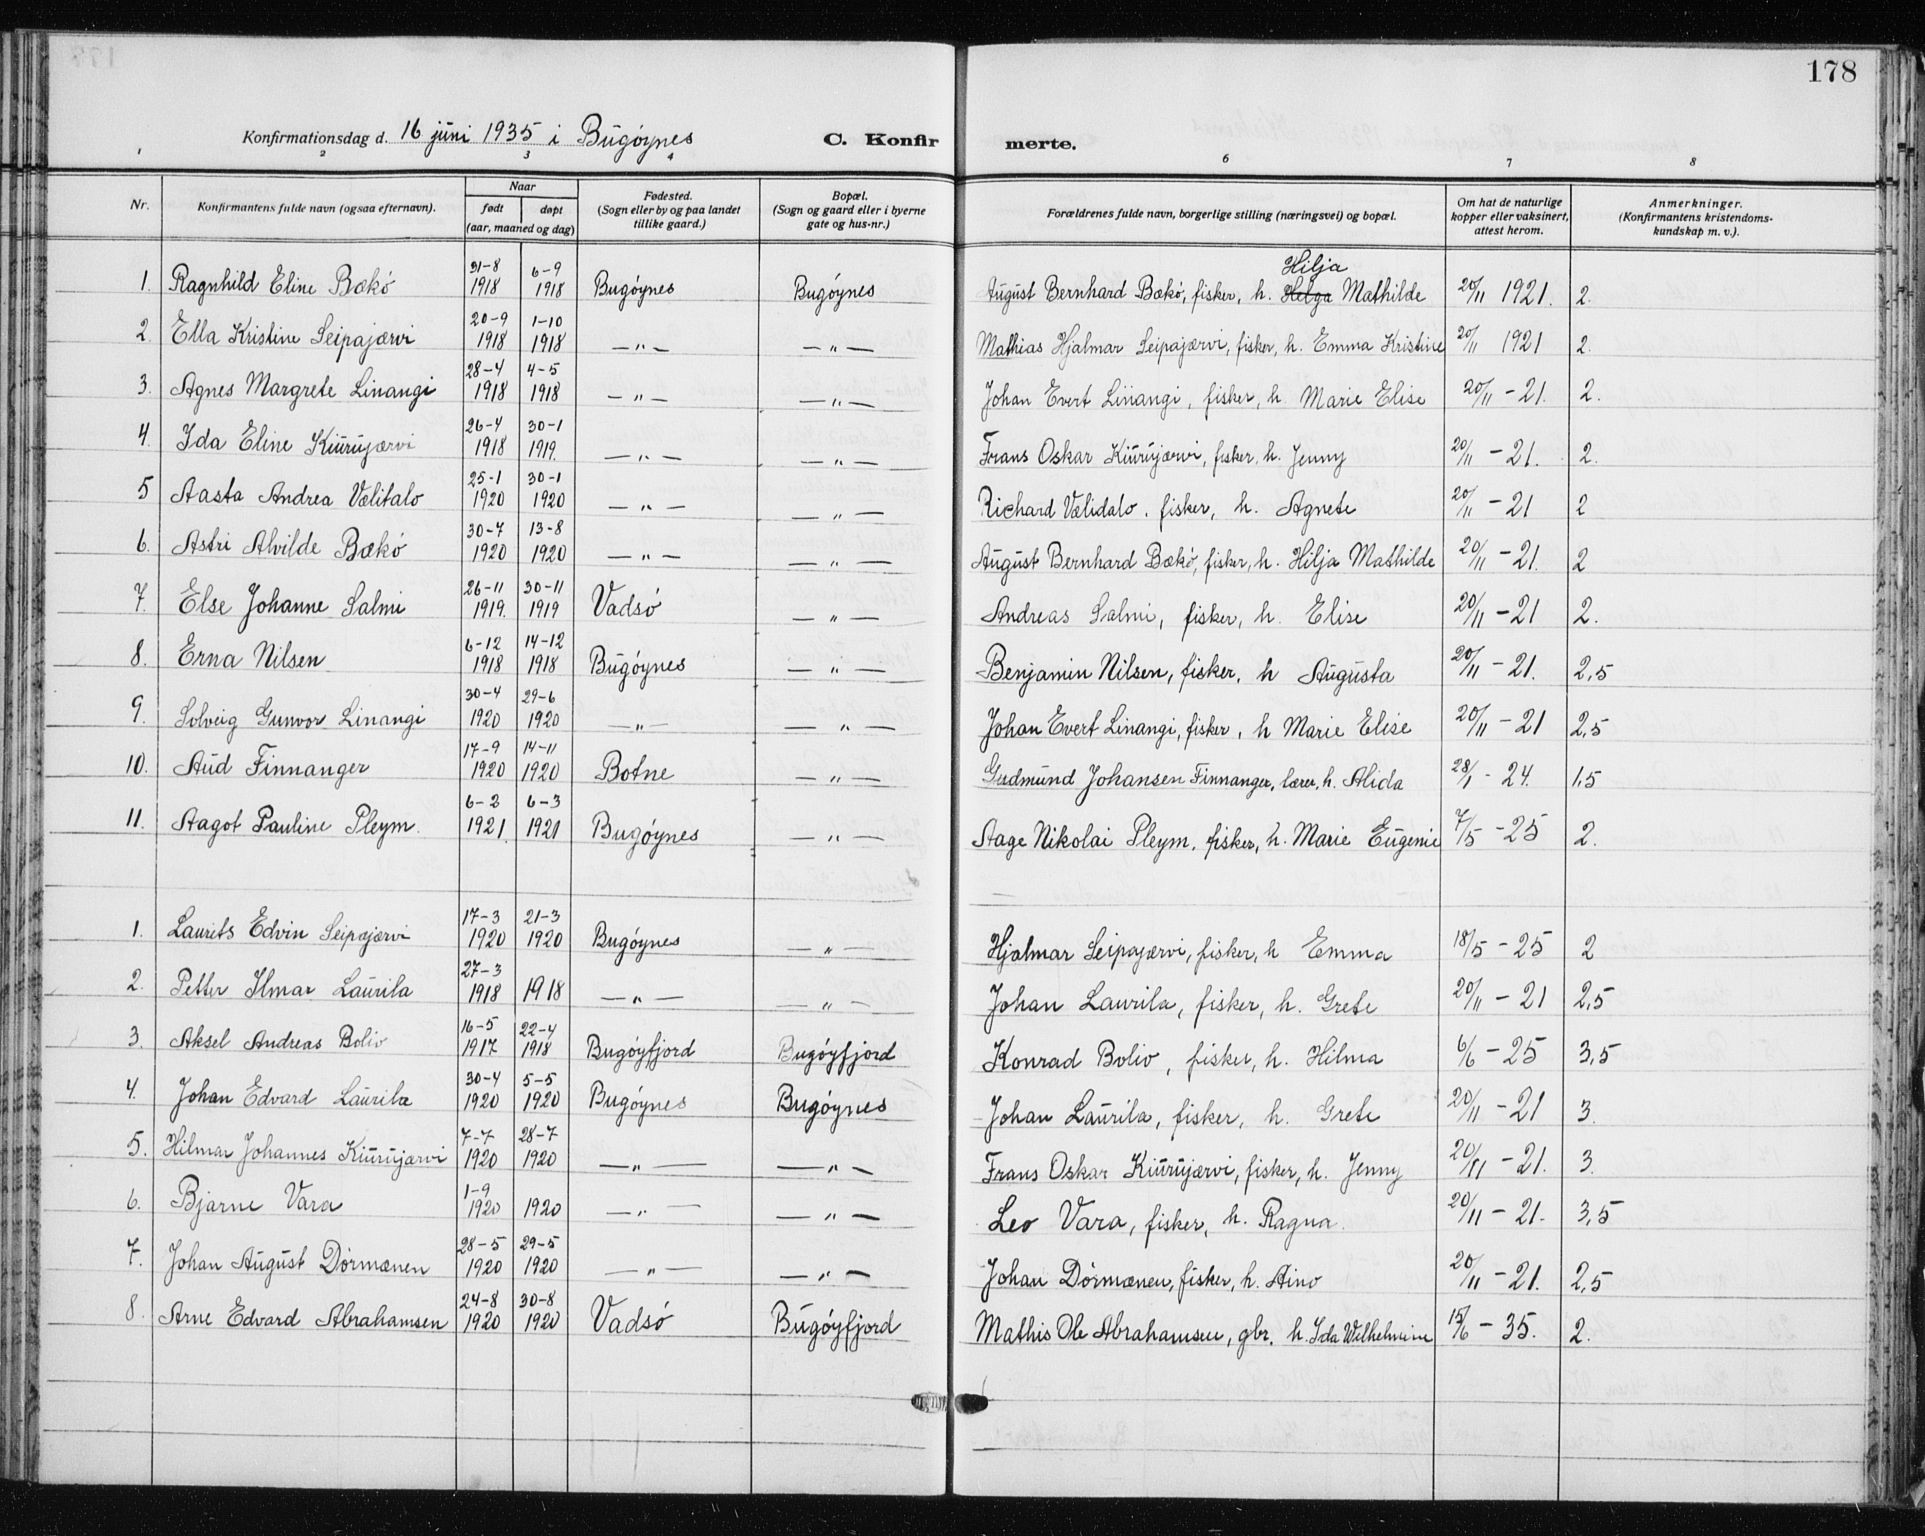 178
Konfirmationsdag d. 16 juni 1935 i Bugøynes C. Konfir merte.
2 3 4 6 7 8
Nr. Konfirmantens fulde navn (ogsaa efternavn). Naar født døpt (aar, maaned og dag) Fødested. (Sogn eller by og paa landet tillike gaard.) Bopæl. (Sogn og gaard eller i byerne gate og hus-nr.) Forældrenes fulde navn, borgerlige stilling (næringsvei) og bopæl. Om hat de naturlige kopper eller vaksinert, attest herom. Anmerkninger. (Konfirmantens kristendoms-kundskap m. v.).
1. Ragnhild Eline Bækø 31-8 1918 6-9 1918 Bugøynes Bugøynes August Bernhard Bækø, fisker, h. Helga Hilja Mathilde 20/11 1921. 2.
2. Ella Kristine Seipajærvi 20-9 1918 1-10 1918 —„— —„— Mathias Hjalmar Seipajærvi, fisker, h. Emma Kristine 20/11 1921 2.
3. Agnes Margrete Linangi 28-4 1918 4-5 1918 —„— —„— Johan Evert Liinangi, fisker, h. Marie Elise 20/11 - 21. 2.
4. Ida Eline Kiurujærvi 26-4 1918 30-1 1919. —„— —„— Frans Oskar Kiurujærvi, fisker, h. Jenny 20/11 - 21. 2.
5 Aasta Andrea Vælitalo 25-1 1920 30-1 1920 —„— —„— Richard Vælidalo, fisker, h. Agnete 20/11 - 21 2
6. Astri Alvilde Bækø 30-7 1920 13-8 1920 —„— —„— August Bernhard Bækø, fisker, h. Hilja Mathilde 20/11 - 21. 2
7. Else Johanne Salmi 26-11 1919. 30-11 1919 Vadsø —„— Andreas Salmi, fisker, h. Elise 20/11 - 21 2.
8. Erna Nilsen 6-12 1918 14-12 1918 Bugøynes —„— Benjamin Nilsen, fisker, h Augusta 20/11 - 21. 2,5
9. Solveig Gunvor Linangi 30-4 1920 29-6 1920 —„— —„— Johan Evert Linangi, fisker, h Marie Elise 20/11 - 21 2,5
10. Aud Finnanger 17-9 1920 14-11 1920 Botne —„— Gudmund Johansen Finnanger, lærer, h. Alida 28/1 - 24. 1,5
11. Aagot Pauline Pleym. 6-2 1921. 6-3 1921 Bugøynes —„— Aage Nikolai Pleym, fisker, h. Marie Eugenie 7/5 - 25 2.
1. Laurits Edvin Seipajærvi 17-3 1920 21-3 1920 Bugøynes —„— Hjalmar Seipajærvi, fisker, h Emma 18/5 - 25 2
2. Petter Ilmar Laurila 27-3 1918 1918 —„— —„— Johan Laurila, fisker, h. Grete 20/11 - 21 2,5
3. Aksel Andreas Bolio 16-5 1917 22-4 1918 Bugøyfjord Bugøyfjord Konrad Bolio, fisker, h. Hilma 6/6 - 25 3,5
4. Johan Edvard Laurila 30-4 1920 5-5 1920 Bugøynes Bugøynes Johan Laurila, fisker, h. Grete 20/11 - 21 3.
5. Hilmar Johannes Kiurujærvi 7-7 1920 28-7 1920 —„— —„— Frans Oskar Kiurujærvi, fisker, h. Jenny 20/11 - 21. 3.
6. Bjarne Vara 1-9 1920 1920 —„— —„— Leo Vara, fisker, h. Ragna. 20/11 - 21. 3,5
7. Johan August Dørmænen 28-5 1920 29-5 1920 —„— —„— Johan Dørmænen, fisker, h. Aino 20/11 - 21. 2,5
8. Arne Edvard Abrahamsen 24-8 1920 30-8 1920 Vadsø Bugøyfjord Mathis Ole Abrahamsen, gbr. h. Ida Wilhelmine 15/6 - 35. 2.